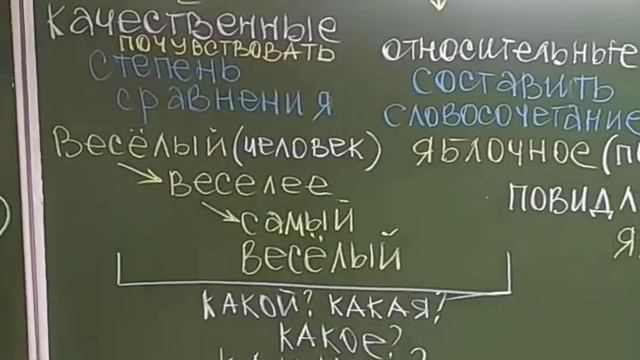 качественные
почувствовать
степень
сравнения
Весёлый (человек)
веселее
самый
весёлый
относительные
составить
словосочетание
яблочное
повидл
какой? какая?
какое?